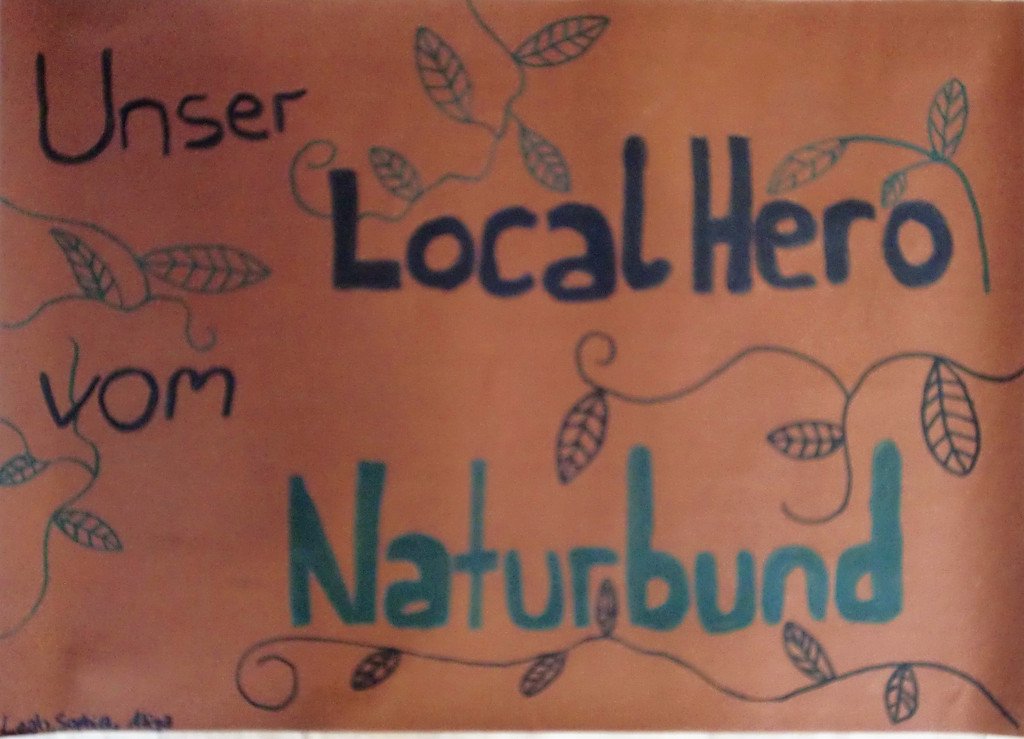 Unser
Local Hero
vom
Naturbund
Leah, Sophia,